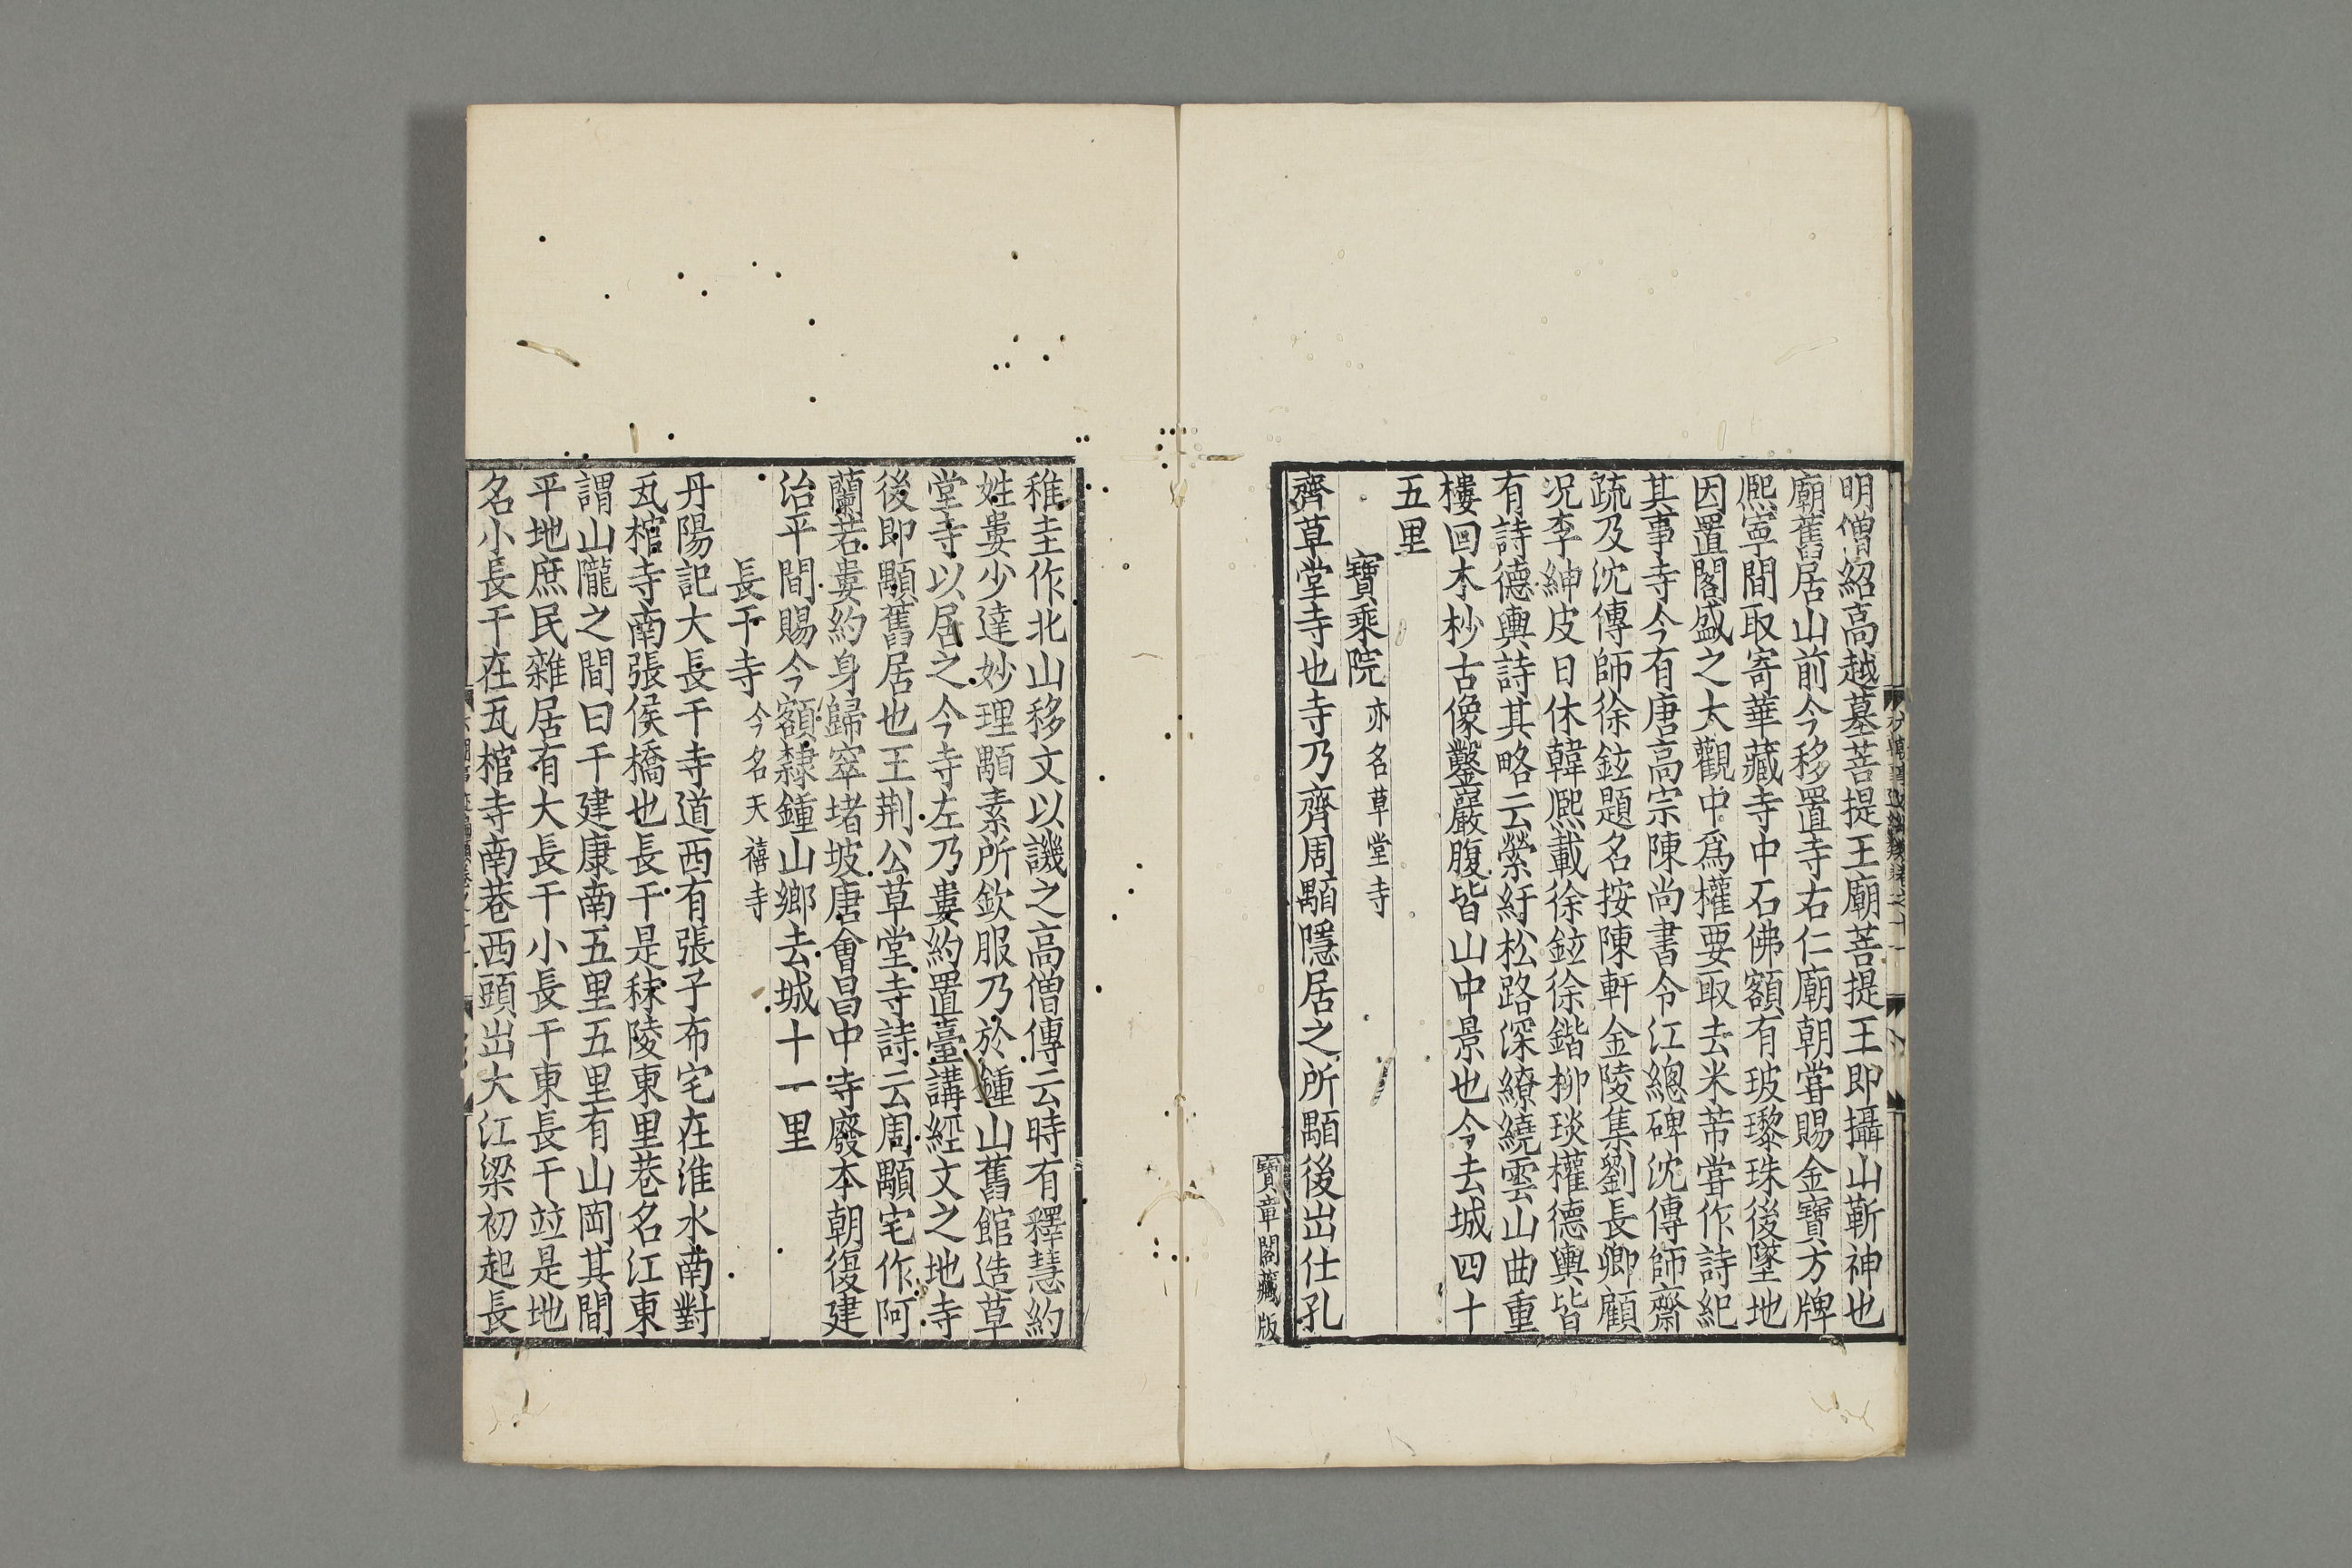 明僧紹高越墓菩提王廟菩提王即攝山靳神也
廟舊居山前今移置寺右仁廟朝甞賜金寶方牌
熈寧間取寄華藏寺中石佛額有玻瓈珠後墜地
因置閣盛之大觀中爲權要取去米芾甞作詩紀
其事寺今有唐高宗陳尚書令江總碑沈傳師齋
疏及沈傳師徐鉉題名按陳軒金陵集劉長卿顧
况李紳皮日休韓熈載徐鉉徐鍇柳琰權德輿皆
有詩德輿詩其略云縈紆松路深繚繞雲山曲重
樓回木杪古像鑿巖腹皆山中景也今去城四十
五里
寶乘院亦名草堂寺
齊草堂寺也寺乃齊周顒隱居之所顒後出仕孔
寶章閣藏版
稚圭作北山移文以譏之高僧傳云時有釋慧約
姓婁少達妙理顒素所欽服乃於鍾山舊館造草
堂寺以居之今寺左乃婁約置臺講經文之地寺
後即顒舊居也王荆公草堂寺詩云周顒宅作阿
蘭若婁約身歸窣堵坡唐會昌中寺廢本朝復建
治平間賜今額隸鍾山鄉去城十一里
長干寺今名天禧寺
丹陽記大長干寺道西有張子布宅在淮水南對
瓦棺寺南張侯橋也長干是秣陵東里巷名江東
謂山隴之間曰干建康南五里五里有山岡其間
平地庶民雜居有大長干小長干東長干竝是地
名小長干在瓦棺寺南巷西頭出大江梁初起長